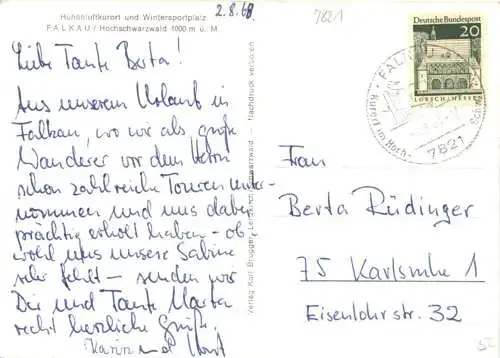 Höhenluftkurort und Wintersportplatz
FALKAU / Hochschwarzwald 1000 m ü. M.
2.8.68
Liebe Tante Berta!
Aus unserem Urlaub in
Falkau, wo wir als große
Wanderer vor dem Herrn
schon zahlreiche Touren unter-
nommen und uns dabei
prächtig erholt haben - ob-
wohl uns unsere Sabine
sehr fehlt - senden wir
Dir und Tante Marta
recht herzliche Grüße.
Karin und Horst
Verlag Karl Brugger, Schwarzwald — Nachdruck verboten
7821
Deutsche Bundespost
20
LORSCH/HESSEN
FALKAU
Kurort im Hoch-
schw
7821
Frau
Berta Rüdinger
75 Karlsruhe 1
Eisenlohrstr. 32